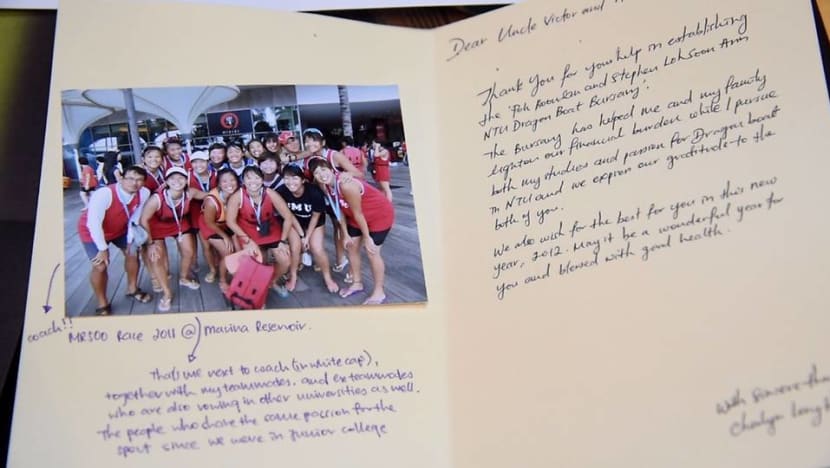 coach!!
SMU
MR500 Race 2011 @ Marina Reservoir.
That's me next to coach (in white cap),
together with my teammates, and ex teammates
who are also rowing in other universities as well.
The people who share the same passion for the
sport since we were in junior college
Dear Uncle Victor and
Thank you for your help in establishing
the 'Poh Boon and Stephen Loh Soon Ann
NTU Dragon Boat Bursary'.
The Bursary has helped me and my family
lighten our financial burden while I pursue
both my studies and passion for Dragon boat
in NTU and we express our gratitude to the
both of you.
We also wish for the best for you in this new
year, 2012. May it be a wonderful year for
you and blessed with good health.
With sincere